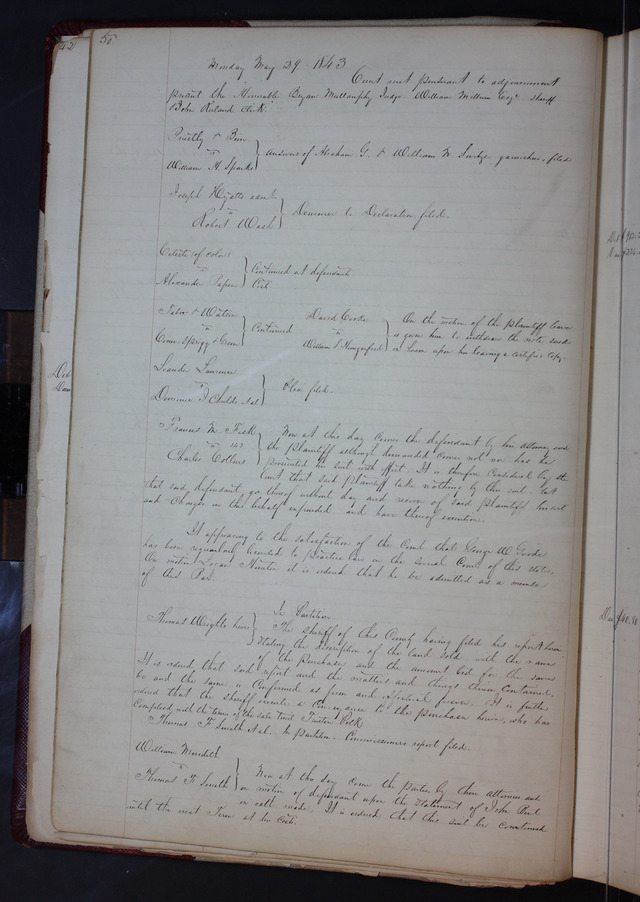 50
Monday May 29 1843
Court met pursuant to adjournment
present the Honorable Bryan Mullanphy Judge William Milburn Esqr Sheriff
& John Ruland Clerk.
Priestly & Bein
vs
William H. Sparks
Answers of Abraham G. & William N. Switzer garnishees, filed
Joseph Hyatts admr.
vs
Robert Wash
Demurrer to Declaration filed.
Celeste (of color)
vs
Alexander Papin
Continued at defendants
Cost
Tabor & Watson
vs
Conn Sprigg & Green
Continued
David Cooke
vs
William S. Hungerford
On the motion of the plaintiff leave
is given him to withdraw the note sued
on herein upon his leaving a certified copy.
Leander Lawrence
vs
Dominic I Childs & al
Plea filed.
Francis M.
vs 343
Charles Collins
Now at this day comes the defendant by his attorney and
the Plaintiff although demanded comes not nor has he
prosecuted his suit with effect. It is therefore Considered by the
Court that said plaintiff take nothing by this suit but
that said defendant go thereof without day and recover of said plaintiff his cost
and Charges in this behalf expended and have thereof execution.
It appearing to the satisfaction of the Court that George W. Goode
has been regularly licensed to practice law in the several Courts of this State,
On motion of Logan Hunton it is ordered that he be admitted as a member
of this Bar.
Thomas Wrights heirs
In Partition
The Sheriff of this County having filed his report herein,
stating the description of the land sold with the name
of the purchaser and the amount bid for the same
It is ordered, that said report and the matters and things therein Contained,
be and the same is Confirmed as firm and effectual forever. It is further
ordered that the Sheriff execute a Conveyance to the purchaser herein, who has
Complied with the terms of the sale Trusten Polk
Thomas F. Smith & al. In partition. Commissioners report filed.
William Meredith
vs
Thomas F. Smith
Now at this day come the parties by their attornies and
on motion of defendant upon the statement of John Bent
on oath made. It is ordered that this suit be continued
until the next Term at his Costs.